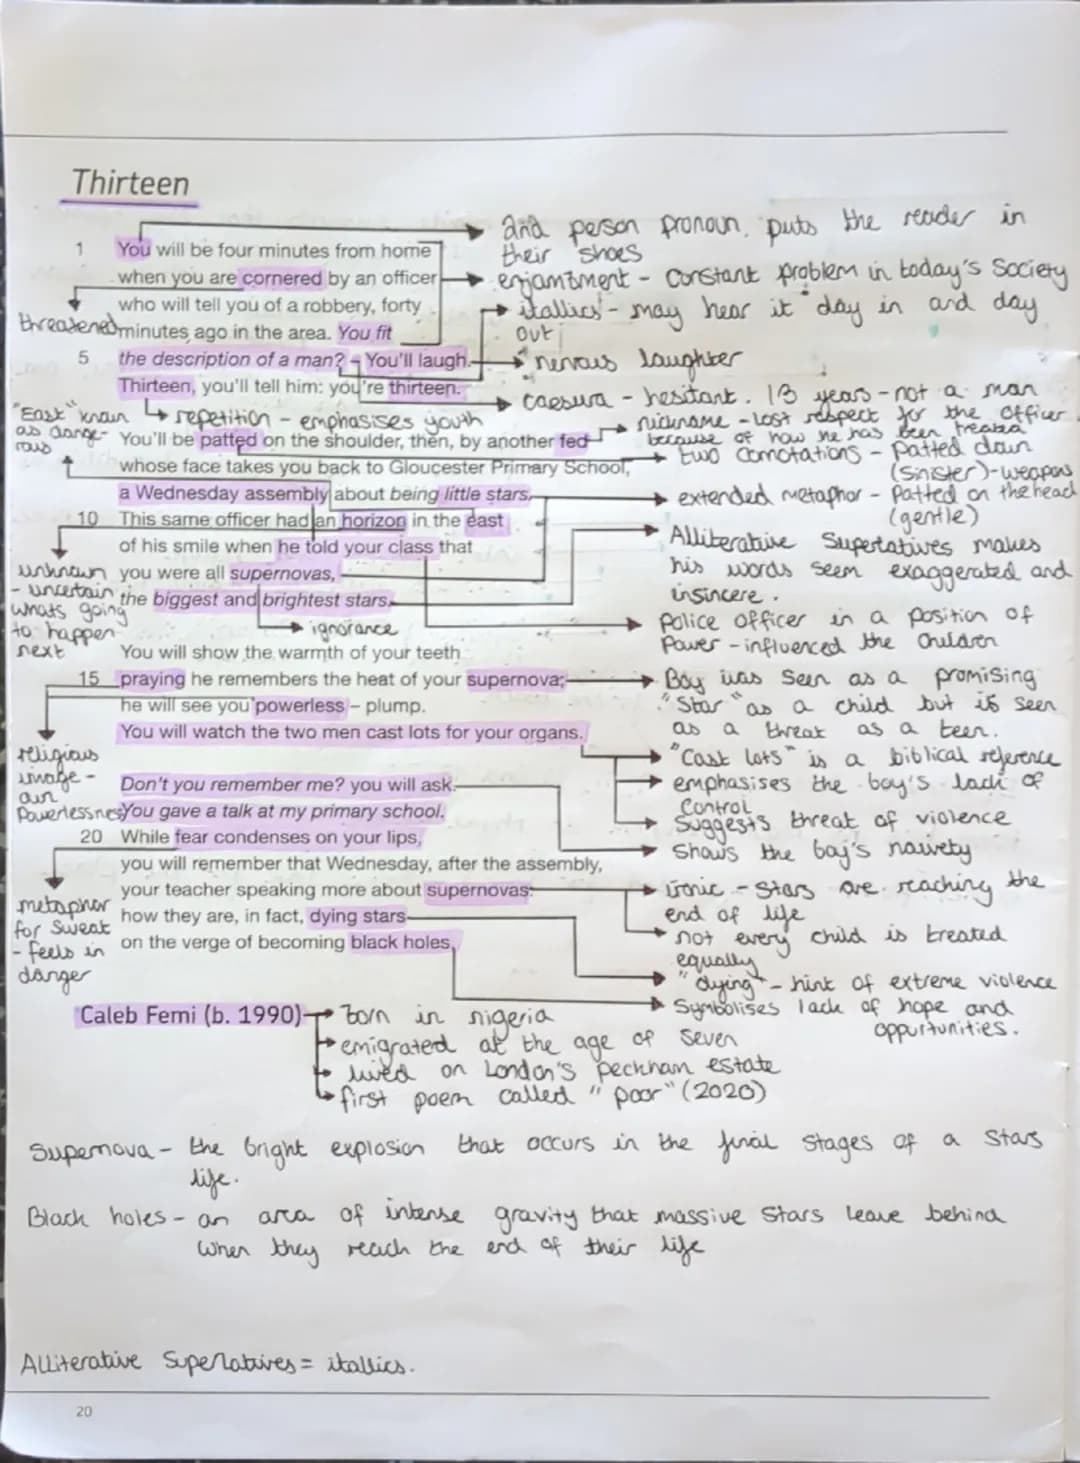 Thirteen
1 You will be four minutes from home
when you are cornered by an officer
who will tell you of a robbery, forty
minutes ago in the area. You fit
5 the description of a man? – You'll laugh.
Thirteen, you'll tell him: you're thirteen.
You'll be patted on the shoulder, then, by another fed
whose face takes you back to Gloucester Primary School,
a Wednesday assembly about being little stars.
10 This same officer had an horizon in the east
of his smile when he told your class that
you were all supernovas,
the biggest and brightest stars.
You will show the warmth of your teeth
15 praying he remembers the heat of your supernova;
he will see you powerless – plump.
You will watch the two men cast lots for your organs.
Don't you remember me? you will ask.
You gave a talk at my primary school.
20 While fear condenses on your lips,
you will remember that Wednesday, after the assembly,
your teacher speaking more about supernovas:
how they are, in fact, dying stars
on the verge of becoming black holes.
Caleb Femi (b. 1990)
2nd person pronoun, puts the reader in
their shoes
enjambment - Constant problem in today's Society
itallics - may hear it "day in and day
out
nervous laughter
caesura - hesitant. 13 years - not a man
nickname - lost respect for the officer
because of how he has been treated
two connotations - patted down
(sinister) - weapons
extended metaphor - Patted on the head
(gentle)
Alliterative Superlatives makes
his words seem exaggerated and
insincere.
Police officer in a position of
Power - influenced the children
Boy was seen as a promising
"Star" as a child but is seen
as a threat as a teen.
"Cast lots" is a biblical reference
emphasises the boy's lack of
Control
Suggests threat of violence
Shows the boy's naivety
ironic - Stars are reaching the
end of life
not every child is treated
equally
"dying" - hint of extreme violence
Symbolises lack of hope and
oppurtunities.
threatened
repetition - emphasises youth
"East" known
as dange-
rous
unknown
- uncertain
whats going
to happen
next
ignorance
religious
image -
own
Powerlessness
metaphor
for Sweat
- feels in
danger
born in nigeria
emigrated at the age of Seven
lived on London's peckham estate
first poem called "poor" (2020)
Supernova - the bright explosion that occurs in the final stages of a Stars
life.
Black holes - an area of intense gravity that massive Stars leave behind
When they reach the end of their life
Alliterative Superlatives = itallics.
20